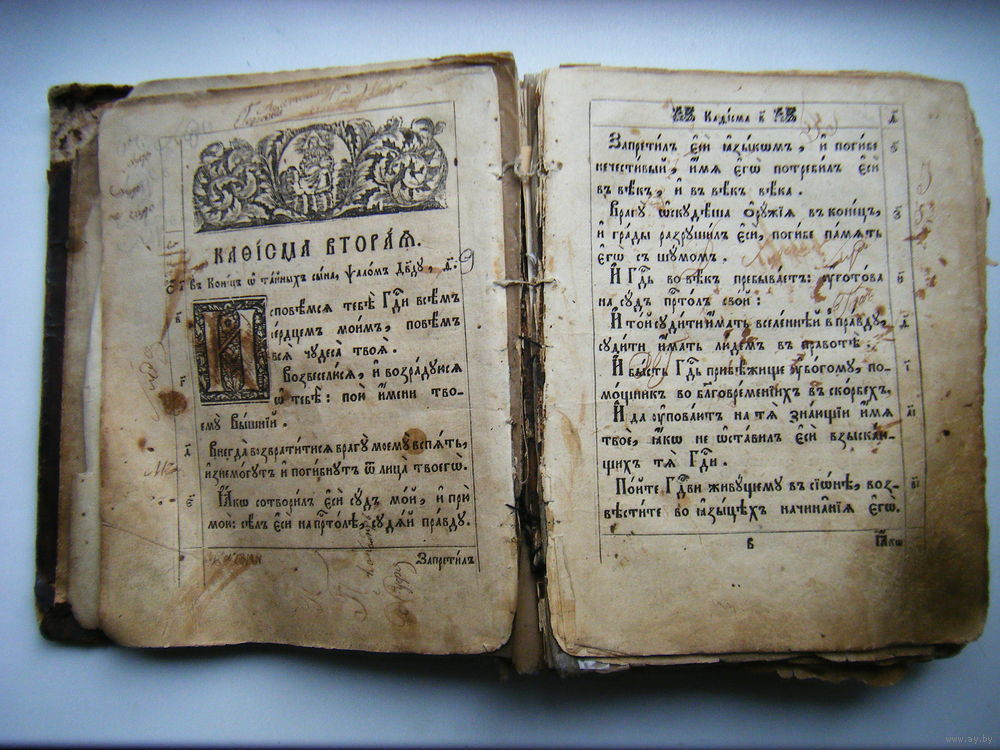 КАѲІСМА ВТОРАѦ.
Въ Конецъ ѡ тайныхъ сына, Ѱаломъ Дв҃ду, ѳ҃:
Исповѣмсѧ тебѣ Гдⷭ҇и всѣмъ
сердцемъ моимъ, повѣмъ
всѧ чꙋдеса твоѧ.
Возвеселюсѧ, и возрадꙋюсѧ
ѡ тебѣ: пою имени тво-
емꙋ Вышнїй.
Внегда возвратитисѧ врагꙋ моемꙋ вспѧть,
изнемогꙋтъ и погибнꙋтъ ѿ лица твоегѡ.
Ꙗкѡ сотворилъ еси сꙋдъ мой, и прю
мою: сѣлъ еси на прⷭ҇толѣ, сꙋдѧй правдꙋ.
Запретилъ
Каѳїсма
Запретилъ еси ꙗзыкѡмъ, и погибе
нечестивый, имѧ егѡ потребилъ еси
въ вѣкъ, и въ вѣкъ вѣка.
Врагꙋ ѡскꙋдѣша ѻрꙋжїѧ въ конецъ,
и грады разрꙋшилъ еси, погибе памѧть
егѡ съ шꙋмомъ.
И Гдⷭ҇ь во вѣкъ пребываетъ: ꙋготова
на сꙋдъ прⷭ҇толъ свой:
И той сꙋдити имать вселеннѣй в правдꙋ,
сꙋдити имать людемъ въ правотѣ.
И бысть Гдⷭ҇ь прибѣжище ꙋбогомꙋ, по-
мощникъ во благовременїихъ въ скорбехъ.
И да ꙋповаютъ на тѧ знающїи имѧ
твое, ꙗкѡ не ѡставилъ еси взыскаю-
щихъ тѧ Гдⷭ҇и.
Пойте Гдⷭ҇ви живꙋщемꙋ въ сїѡнѣ, воз-
вѣстите во ꙗзыцѣхъ начинанїѧ егѡ.
в Ꙗкѡ
www.ay.by